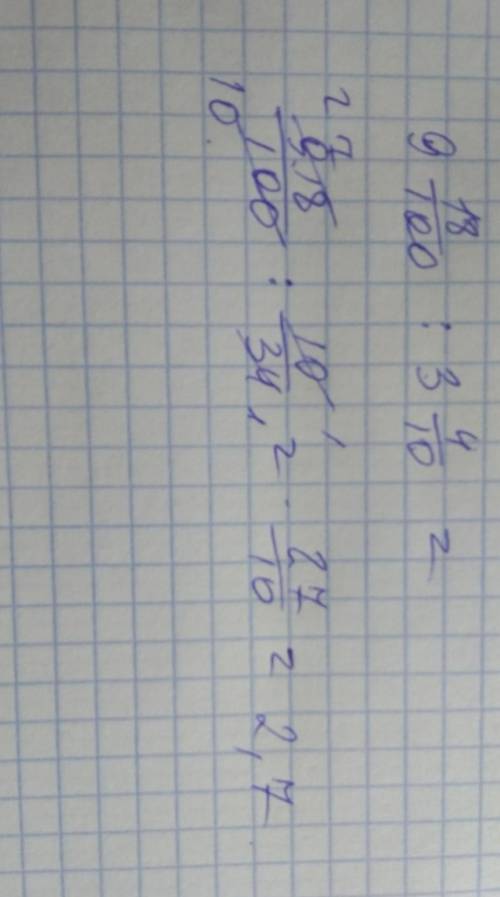 9 18/100 : 3 4/10 =
918/100 : 10/34 = 27/10 = 2,7
27
10
1
1